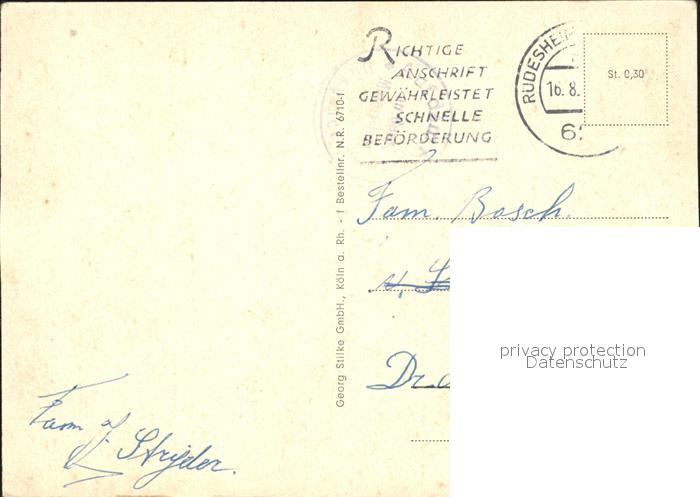 RICHTIGE
ANSCHRIFT
GEWÄHRLEISTET
SCHNELLE
BEFÖRDERUNG
RÜDESHEI
16.8.
6
St. 0,30
Georg Stilke GmbH., Köln a. Rh. - f Bestellnr. N.R. 6710-f
Fam. Bosch.
privacy protection
Datenschutz
Dr.
Fam
Strijder.